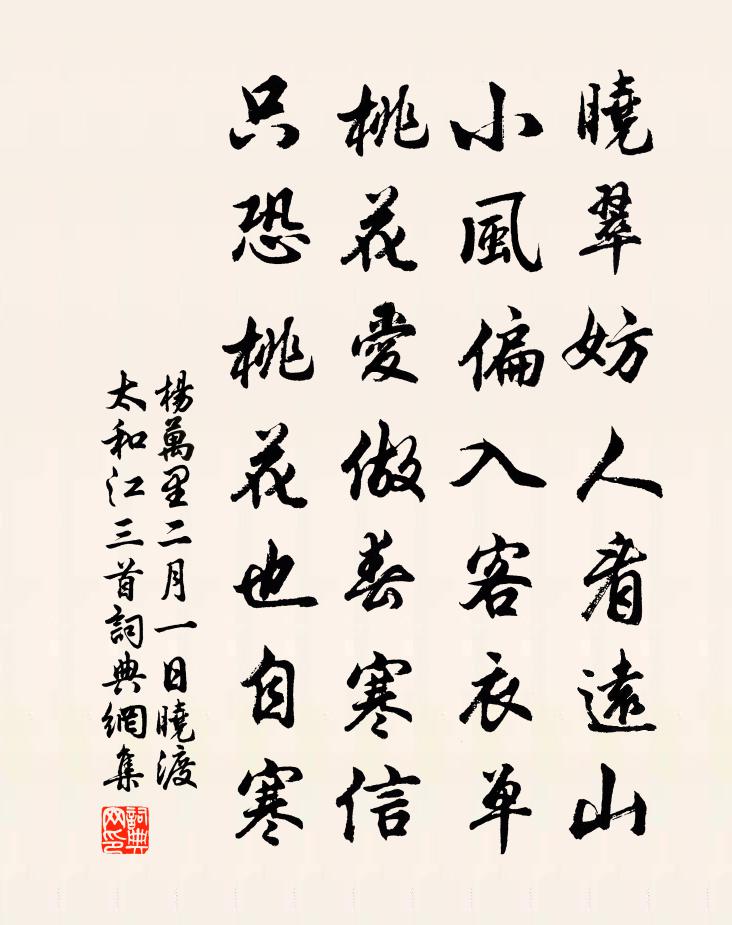 曉翠妨人看遠山
小風偏入客衣單
桃花愛做春寒信
只恐桃花也自寒
楊萬里二月一日曉渡
太和江三首詞典網集
詞典
网印